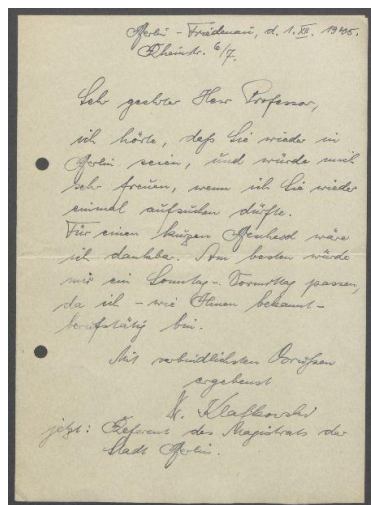 Berlin - Friedenau, d. 1. XII. 1945.
Rheinstr. 6/7.
Sehr geehrter Herr Professor,
ich hörte, daß Sie wieder in
Berlin seien, und würde mich
sehr freuen, wenn ich Sie wieder
einmal aufsuchen dürfte.
Für einen kurzen Bescheid wäre
ich dankbar. Am besten würde
mir ein Sonntag-Vormittag passen,
da ich - wie Ihnen bekannt -
berufstätig bin.
Mit verbindlichsten Grüßen
ergebenst
Klafkowski
jetzt: Referent des Magistrats der
Stadt Berlin.